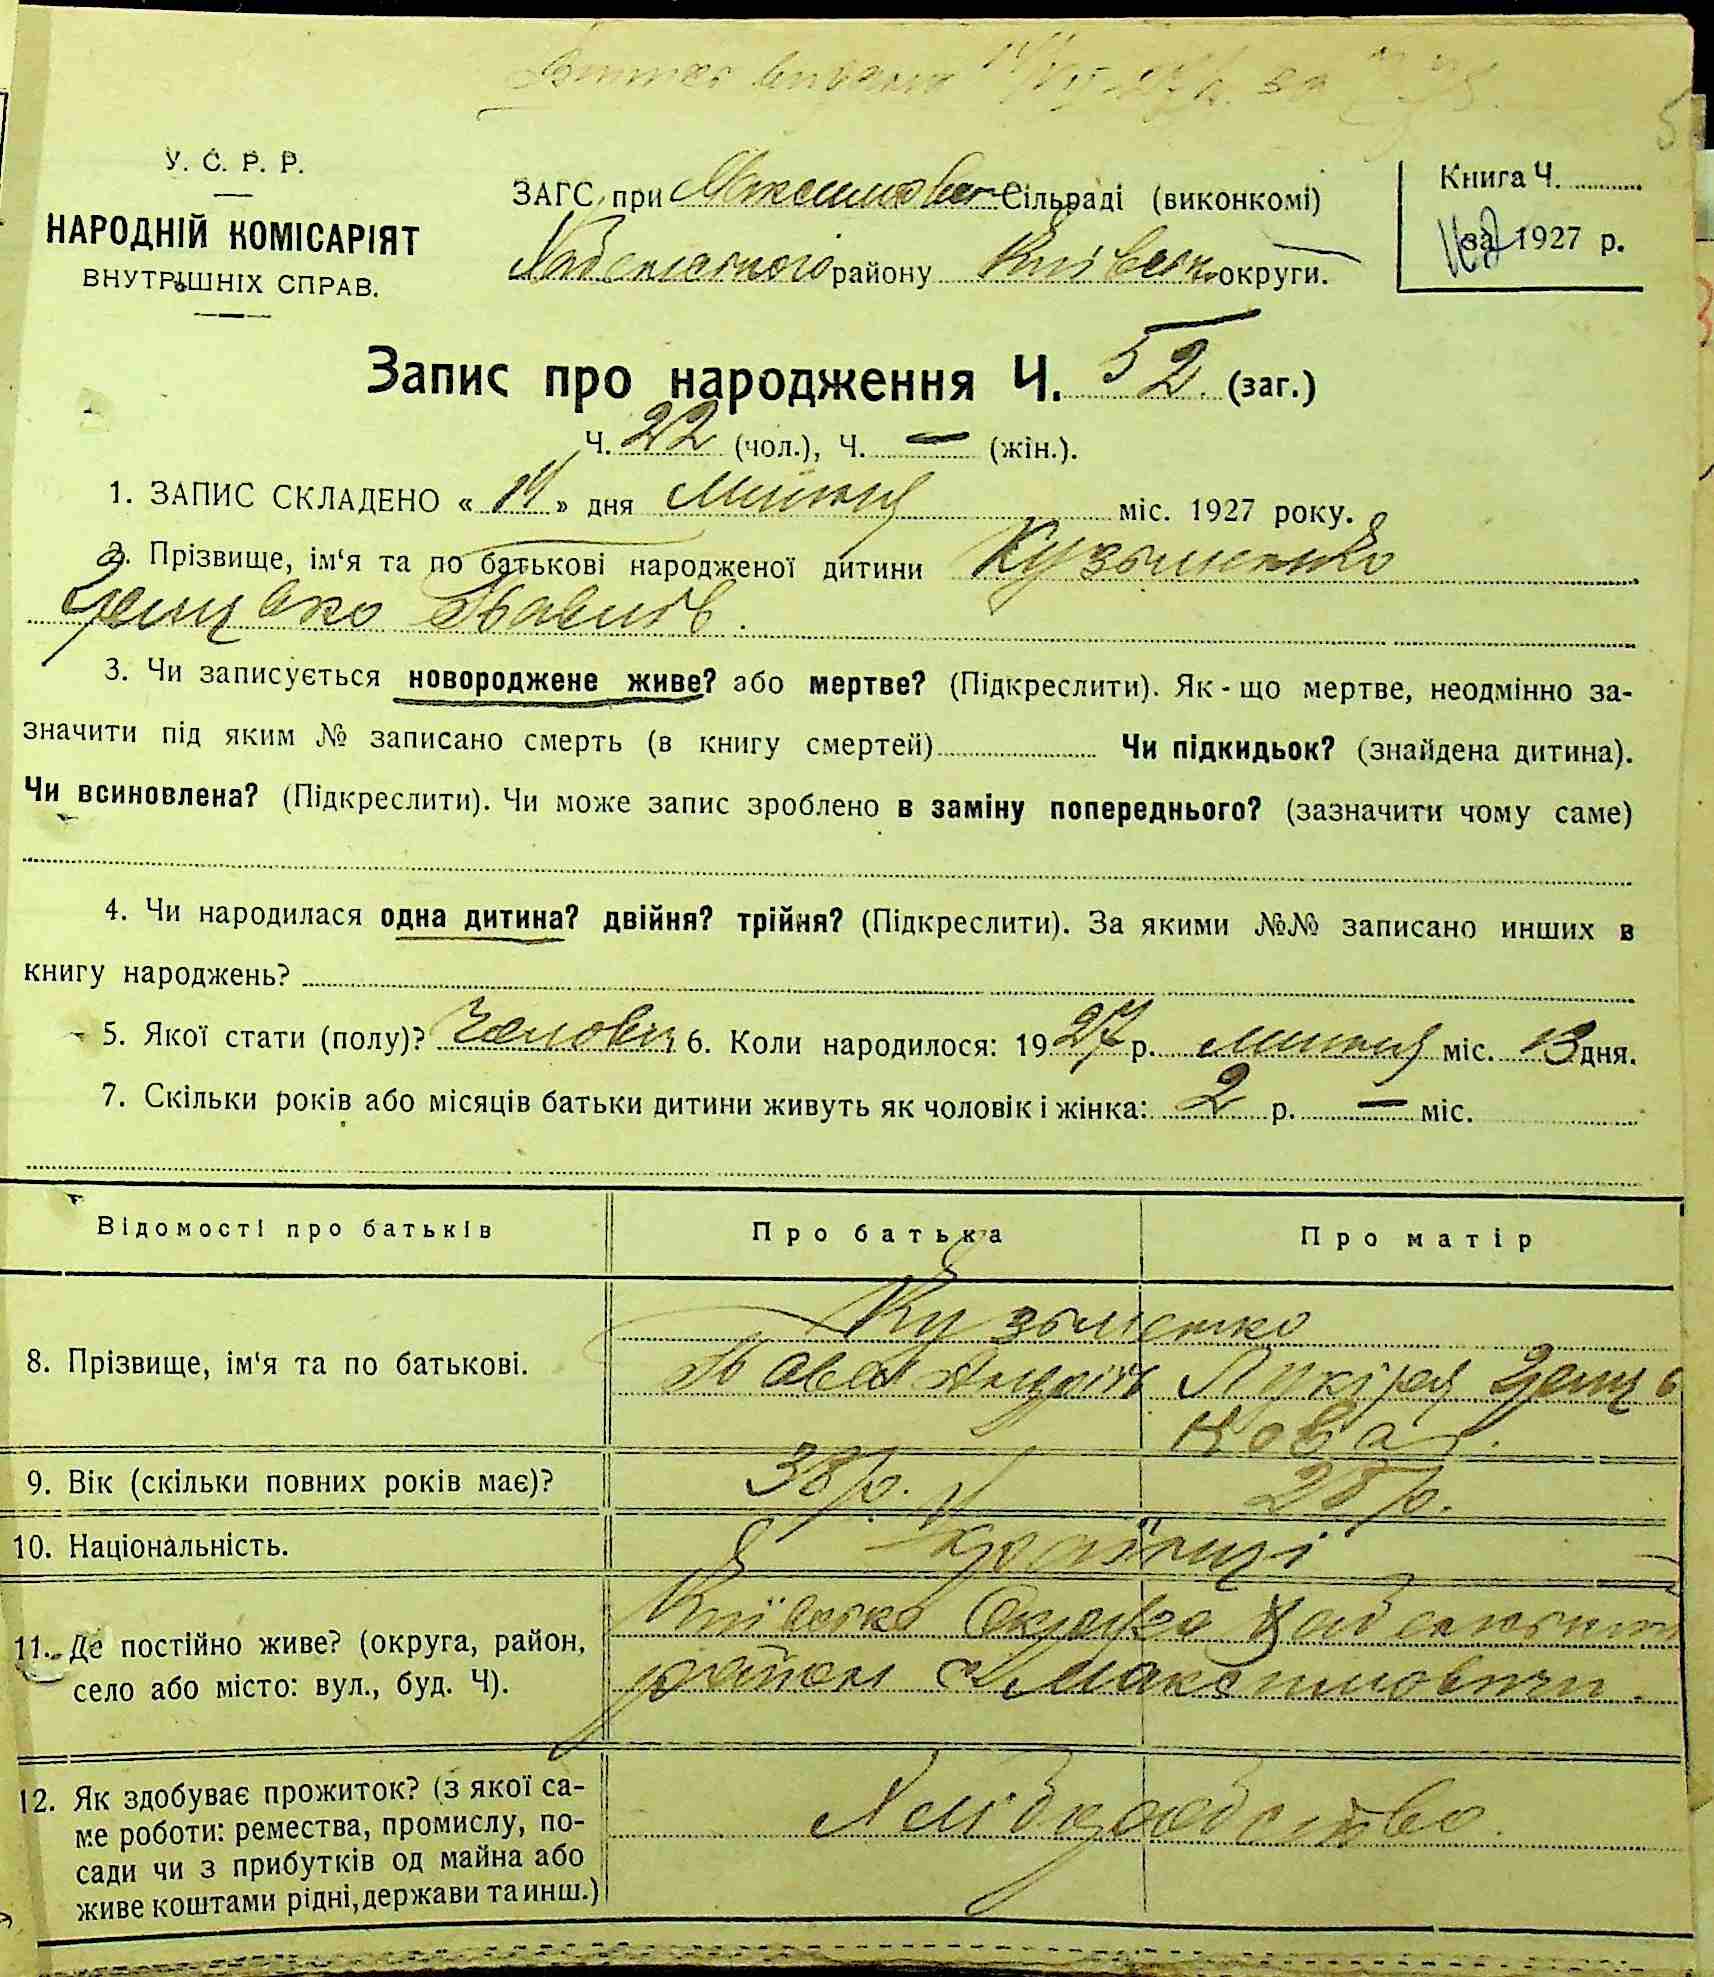 У. С. Р. Р.
НАРОДНІЙ КОМІСАРІЯТ
ВНУТРІШНІХ СПРАВ.
ЗАГС при Максимовец Сільраді (виконкомі)
Хабенського району Київськ. округи.
Книга Ч.
за 1927 р.
Запис про народження Ч. 52 (заг.)
Ч. 22 (чол.), Ч. — (жін.).
1. ЗАПИС СКЛАДЕНО « 14 » дня міс. 1927 року.
2. Прізвище, ім'я та по батькові народженої дитини Кузьменко
Павлів.
3. Чи записується новороджене живе? або мертве? (Підкреслити). Як - що мертве, неодмінно за-
значити під яким № записано смерть (в книгу смертей) Чи підкидьок? (знайдена дитина).
Чи всиновлена? (Підкреслити). Чи може запис зроблено в заміну попереднього? (зазначити чому саме)
4. Чи народилася одна дитина? двійня? трійня? (Підкреслити). За якими №№ записано инших в
книгу народжень?
5. Якої стати (полу)? 6. Коли народилося: 1927 р. міс. 13 дня.
7. Скільки років або місяців батьки дитини живуть як чоловік і жінка: 2 р. — міс.
Відомості про батьків
Про батька
Про матір
8. Прізвище, ім'я та по батькові.
Кузьменко
Павло Андріїв
Лукірея
9. Вік (скільки повних років має)?
38 р.
28 р.
10. Національність.
Українці
11. Де постійно живе? (округа, район,
село або місто: вул., буд. Ч).
Київська Округа Хабенський
район с. Максимовичи.
12. Як здобуває прожиток? (з якої са-
ме роботи: ремества, промислу, по-
сади чи з прибутків од майна або
живе коштами рідні, держави та инш.)
Хліборобство.